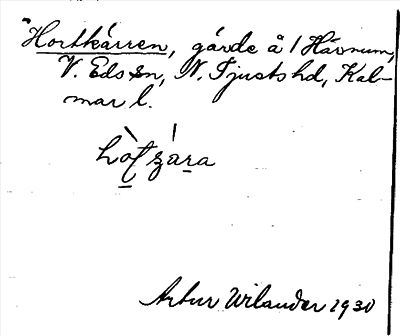 "Hortkärren, gärde å 1 Hävnum,
V. Eds sn, N. Tjusts hd, Kal-
mar l.
Artur Wilander 1930